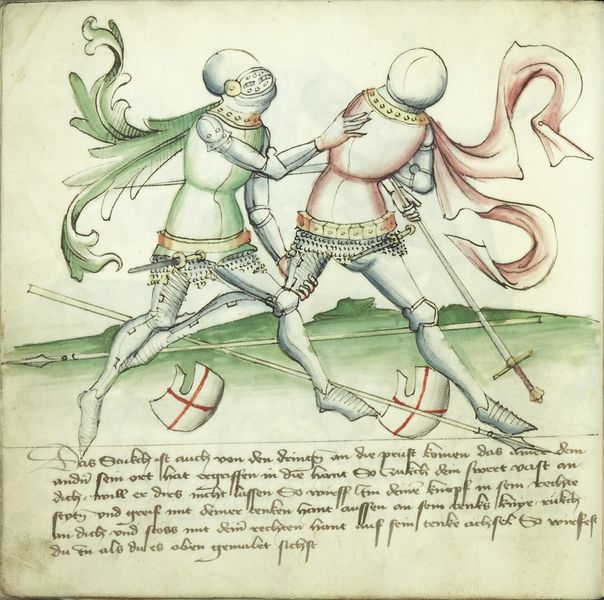 Das Stukch ist auch von den dringn an die prust komen das ainer dem
andern sein ort hat ergriffen in die hant So rukch dein swert vast an
dich will er dies nicht lassen So würff Im deinen knopf in sein rechte
seytn und greif mit deiner tenken hant aussen an sein tenks knye rukch
an dich und stoss mit deiner rechten hant auf sein tenke achsel So wirfest
du In als du es oben gemalet sichst